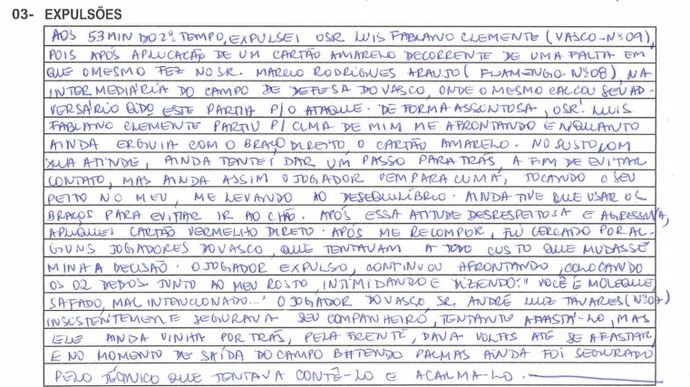 03- EXPULSÕES
AOS 53 MIN DO 2º TEMPO, EXPULSEI O SR. LUIS FABIANO CLEMENTE (VASCO-Nº09),
POIS APÓS APLICAÇÃO DE UM CARTÃO AMARELO DECORRENTE DE UMA FALTA EM
QUE O MESMO FEZ NO SR. MARCIO RODRIGUES ARAUJO (FLAMENGO Nº08), NA
INTERMEDIÁRIA DO CAMPO DE DEFESA DO VASCO, ONDE O MESMO CALÇOU SEU AD-
VERSÁRIO QDO ESTE PARTIA P/O ATAQUE. DE FORMA ASSONTOSA, O SR. LUIS
FABIANO CLEMENTE PARTIU P/ CIMA DE MIM ME AFRONTANDO E ENQUANTO
AINDA ERGUIA COM O BRAÇO DIREITO, O CARTÃO AMARELO. NO SUSTO, COM
SUA ATITUDE, AINDA TENTEI DAR UM PASSO PARA TRÁS, A FIM DE EVITAR
CONTATO, MAS AINDA ASSIM O JOGADOR VEM PARA CIMA, TOCANDO O SEU
PEITO NO MEU, ME LEVANDO AO DESEQUILÍBRIO. AINDA TIVE QUE USAR OS
BRAÇOS PARA EVITAR IR AO CHÃO. APÓS ESSA ATITUDE DESRESPEITOSA E AGRESSIVA,
APLIQUEI CARTÃO VERMELHO DIRETO. APÓS ME RECOMPOR, FUI CERCADO POR AL-
GUNS JOGADORES DO VASCO, QUE TENTAVAM A TODO CUSTO QUE MUDASSE
MINHA DECISÃO. O JOGADOR EXPULSO, CONTINUOU AFRONTANDO, COLOCANDO
OS 02 DEDOS JUNTO AO MEU ROSTO, INTIMIDANDO E DIZENDO: "VOCÊ É MOLEQUE,
SAFADO, MAL INTENCIONADO..." O JOGADOR DO VASCO, SR. ANDRÉ LUIZ TAVARES (Nº07)
INSISTENTEMENTE SEGURAVA SEU COMPANHEIRO, TENTANTO AFASTÁ-LO, MAS
ELE AINDA VINHA POR TRÁS, PELA FRENTE, DAVA VOLTAS ATÉ SE AFASTAR,
E NO MOMENTO DE SAÍDA DO CAMPO BATENDO PALMAS AINDA FOI SEGURADO
PELO TÉCNICO QUE TENTAVA CONTÊ-LO E ACALMA-LO.